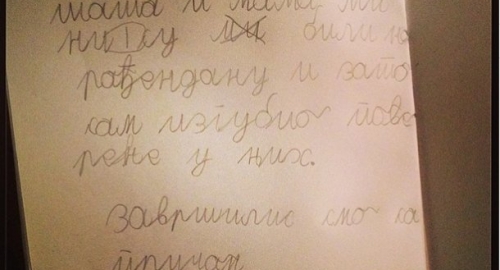 тата и мама ми
нису ми били на
рођендану и зато
сам изгубио пове
рење у њих.
завршили смо са
причом